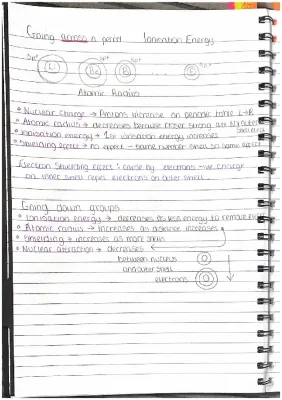 Going across a period Ionisation Energy
3p+ 4p+ 5p+
Li Be B ......
Atomic Radius
Nuclear Charge → Protons increase on periodic table L→R
Atomic radius → decreases because closer strong att to outer electrons
ionisation energy → 1st ionisation energy increases
Shielding effect → no effect - same number shell so same effect
Electron Shielding effect: cause by electrons -ive charge
on inner shell repels electrons on outer shell
Going down groups
Ionisation energy → decreases as less energy to remove
Atomic radius → increases as distance increases
Shielding → increases as more shells
Nuclear attraction → decreases
between nucleus
and outer shell
electrons